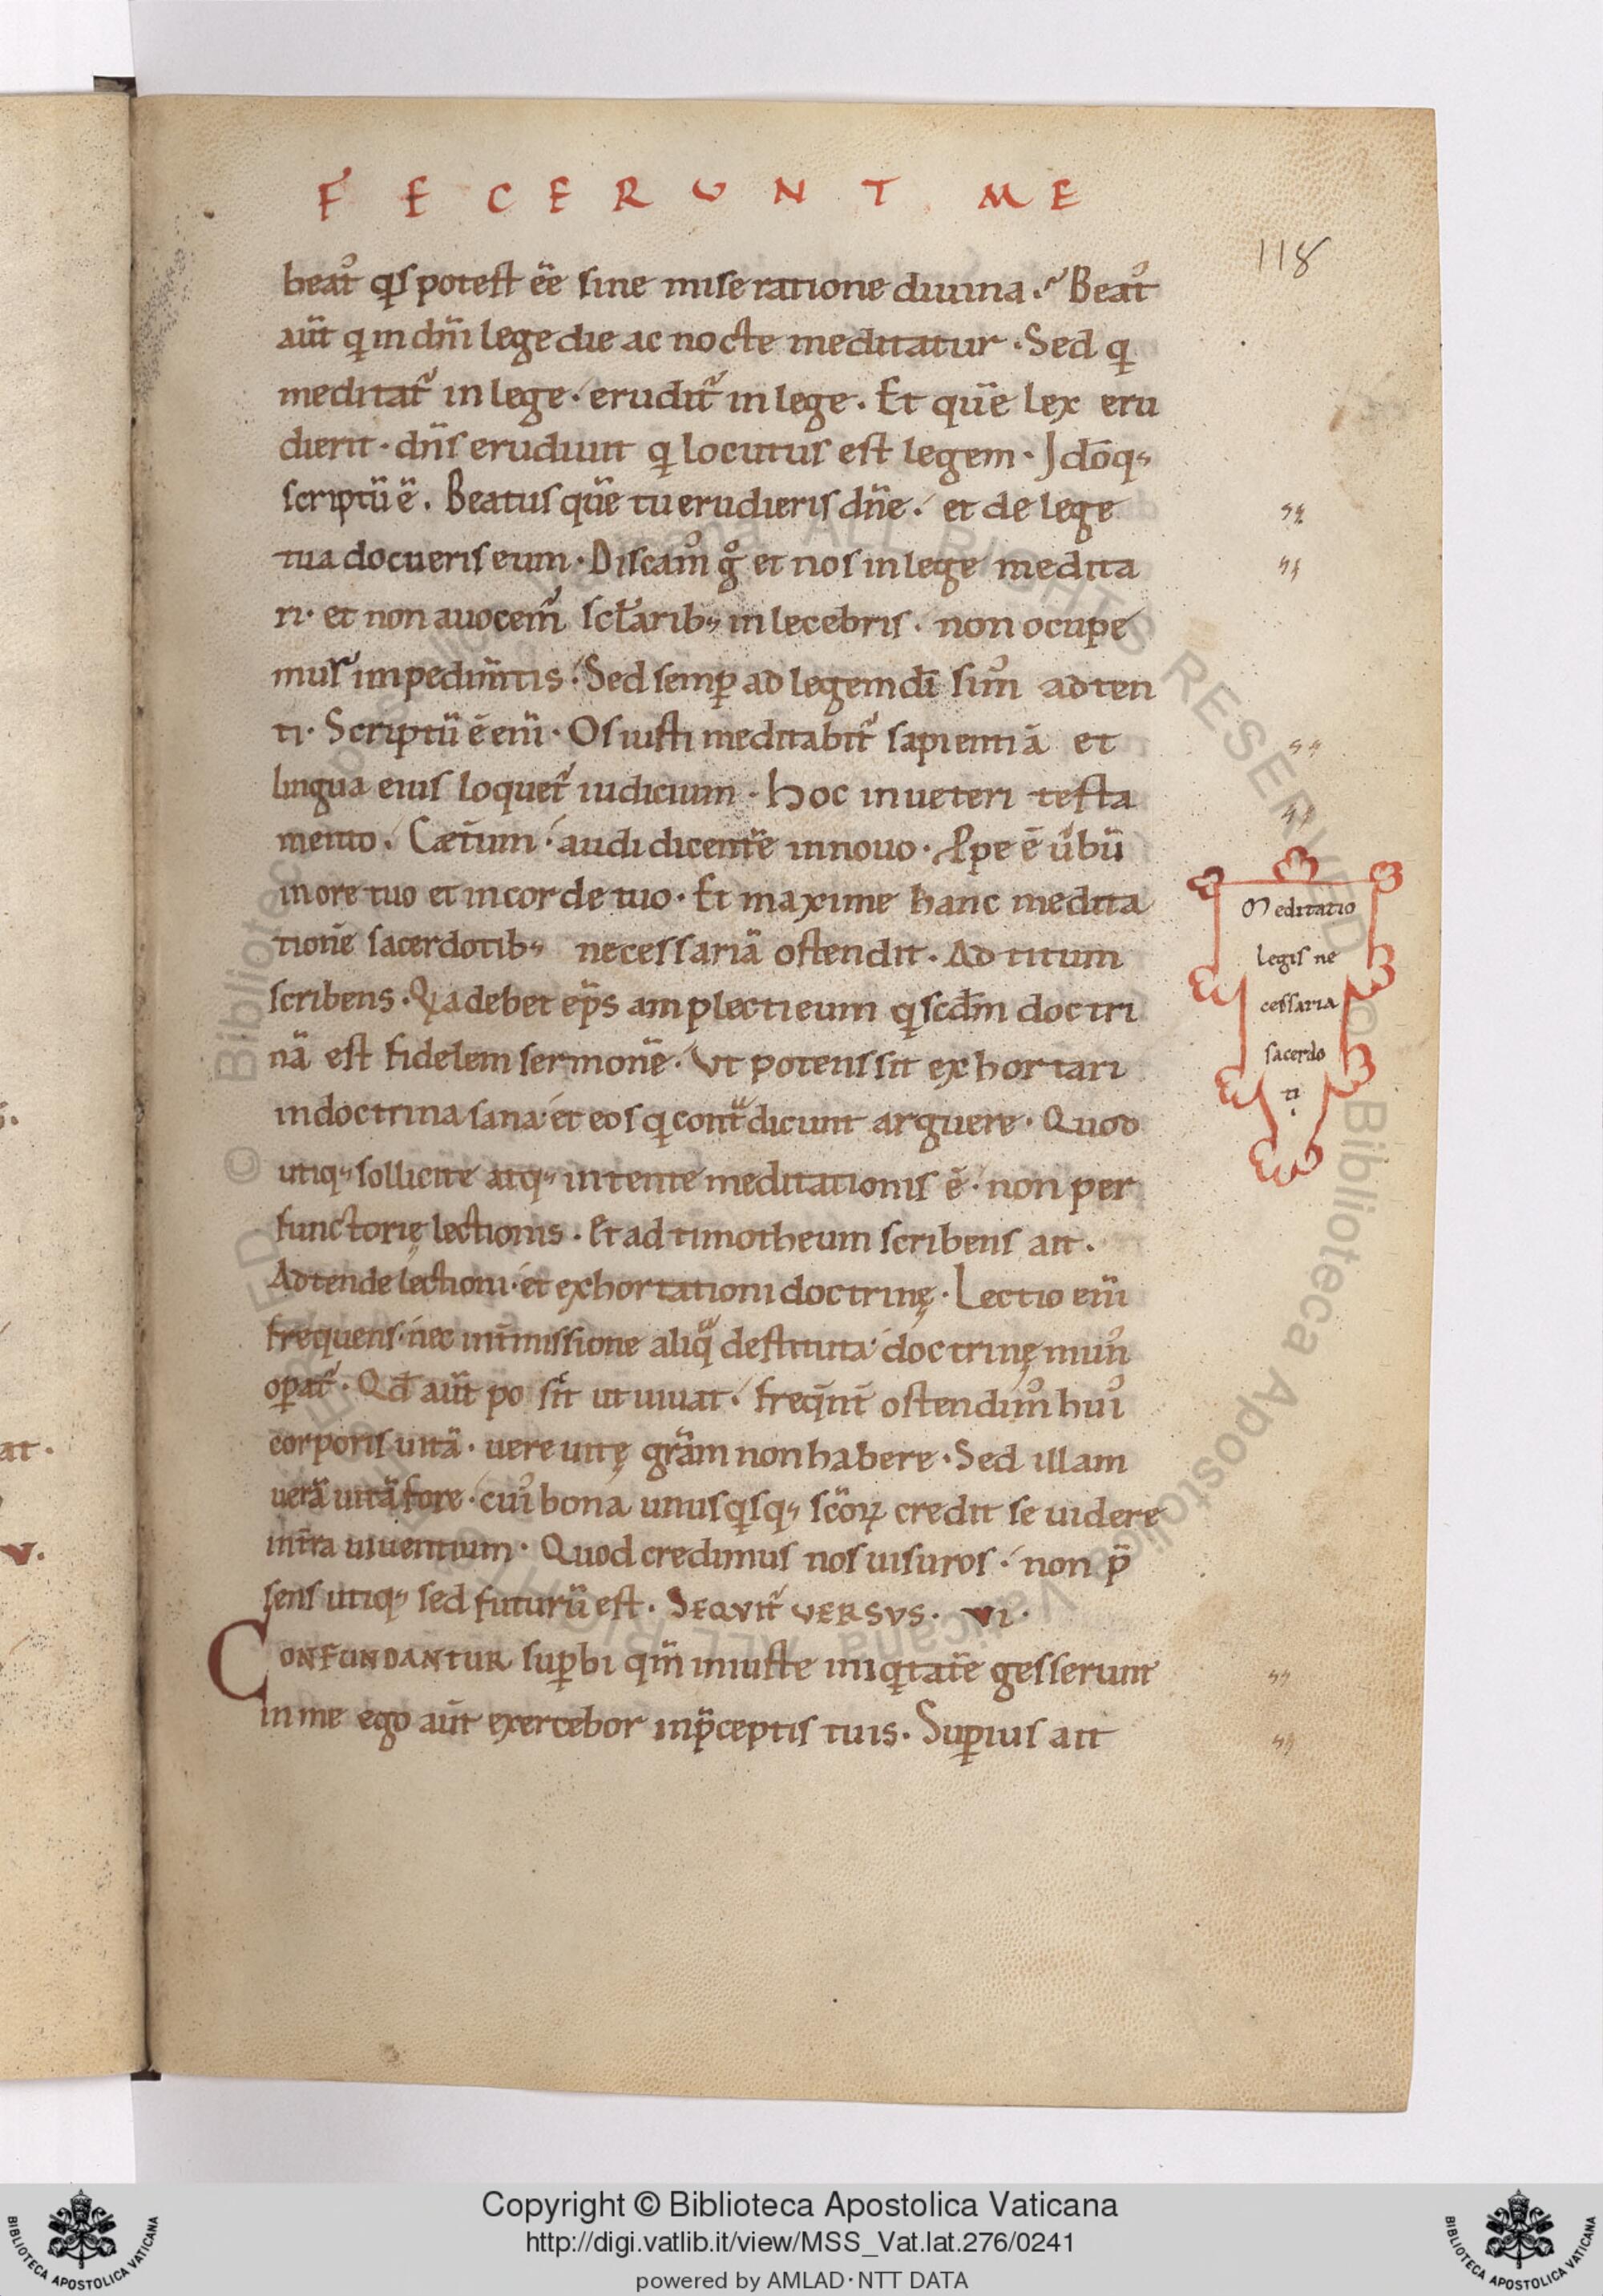 FECERUNT ME
118
beat᷒ qͥs potest ēe sine miseratione diuina. Beat᷒
aut̄ qͥ in dn̄i lege die ac nocte meditatur. Sed qͥ
meditat᷑ in lege. erudit᷑ in lege. Et quē lex eru
dierit. dn̄s erudiuit qͥ locutus est legem. Idōq;
scriptū ē. Beatus quē tu erudieris dn̄e. et de lege
tua docueris eum. Discam᷒ gͦ et nos in lege medita
ri. et non auocem᷑ sc̄larib; inlecebris. non ocupe
mur impedim̄tis. Sed semꝑ ad legem dī sim᷒ adten
ti. Scriptū ē eni̅. Os iusti meditabit᷑ sapientiā et
lingua eius loquet᷑ iudicium. hoc in ueteri testa
mento. Cæt̄um. audi dicentē in nouo. Ꝓpe ē u̅bū
in ore tuo et in corde tuo. Et maxime hanc medita
tionē sacerdotib; necessariā ostendit. Ad titum
scribens. Qͥa debet ep̄s amplecti eum qͥ scd̄m doctri
nā est fidelem sermonē. Ut potens sit exhortari
in doctrina sana. et eos qͥ contᵃdicunt arguere. Quod
utiq; sollicite atq; intente meditationis ē. non per
functorię lectionis. Et ad timotheum scribens ait.
Adtende lectioni. et exhortationi doctrinę. Lectio eni̅
frequens. nec int̄missione aliqᵃ destituta doctrinę mun᷒
oꝑat᷑. Qd̄ aut̄ po sit ut uiuat. freq̄nt̄ ostendim᷒ hui᷒
corporis uitā. uere uitę grām non habere. Sed illam
uerā uitā fore. cui᷒ bona unusqͥsq; sc̄oꝝ credit se uidere
int̄ra uiuentium. Quod credimus nos uisuros. non p̄
sens utiq; sed futurū est. SEQVIT᷑ VERSVS. VI.
CONFUNDANTUR suꝑbi qm̄ iniuste iniqͥtatē gesserunt
in me ego aut̄ exercebor in p̄ceptis tuis. Suꝑius ait
Meditatio
legis ne
cessaria
sacerdo
ti.
at.
V.
Copyright © Biblioteca Apostolica Vaticana
http://digi.vatlib.it/view/MSS_Vat.lat.276/0241
powered by AMLAD·NTT DATA
BIBLIOTECA APOSTOLICA VATICANA
BIBLIOTECA APOSTOLICA VATICANA